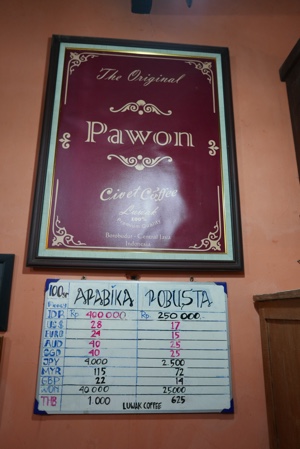 The Original
Pawon
Civet Coffee
Luwak
Borobudur - Central Java
Indonesia
100gr ARABIKA ROBUSTA
IDR Rp. 400.000. Rp. 250.000.
US$ 28 17
24 15
AUD 40 25
SGD 40 25
JPY 4.000 2.500
MYR 115 72
GBP 22 14
40.000 25000
THB 1.000 625
LUWAK COFFEE